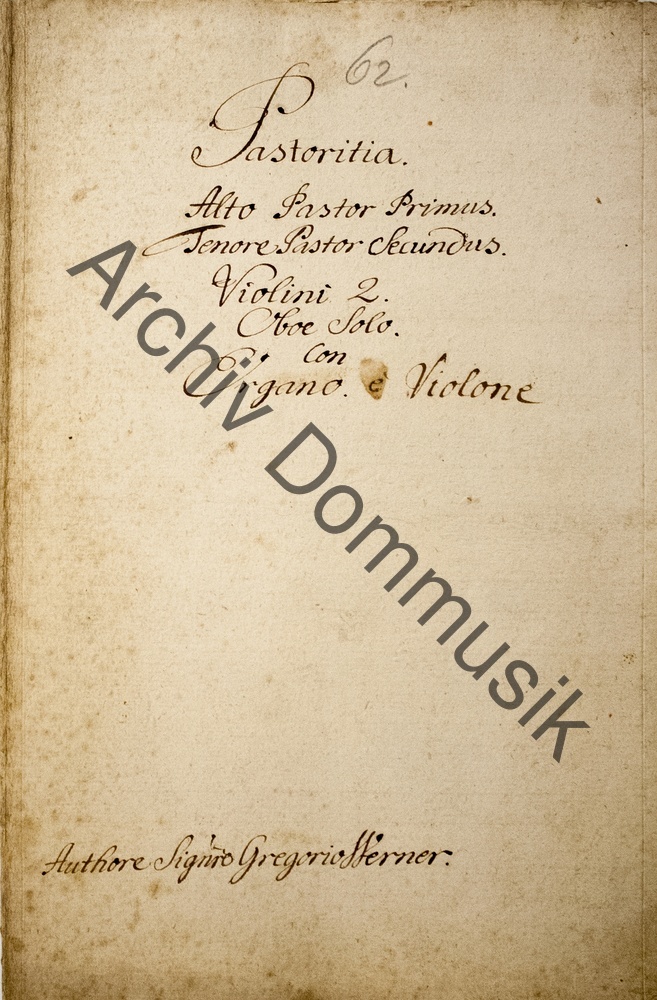 62.
Pastoritia.
Alto Pastor Primus.
Tenore Pastor Secundus.
Violini 2.
Oboe Solo.
Con
Organo. è Violone
Authore Sigńro Gregorio Werner.
Archiv Dommusik